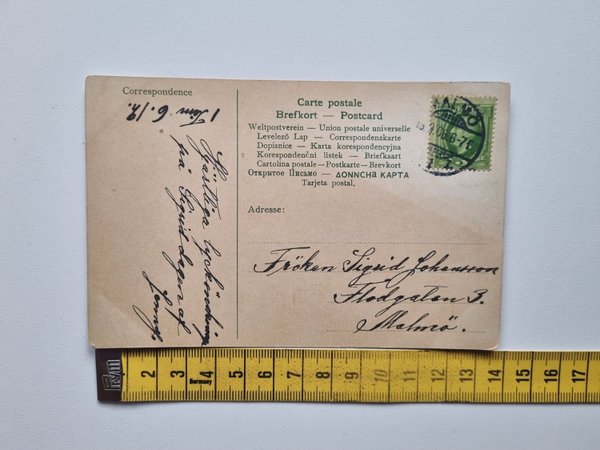 Correspondence
Carte postale
Brefkort — Postcard
Weltpostverein — Union postale universelle
Levelező Lap — Correspondenzkarte
Dopisnice — Karta korespondencyjna
Korespondenčni listek — Briefkaart
Cartolina postale — Postkarte — Brevkort
Открытое Письмо — ΔΟΝΝCHA КАРТА
Tarjeta postal.
MALMÖ
Adresse:
Fröken Sigrid Johansson
Flodgatan 3.
Malmö.
Hjärtliga lyckönskning
på Sigriddagen af
2 3 4 Germany 5 6 7 8 9 10 11 12 13 14 15 16 17